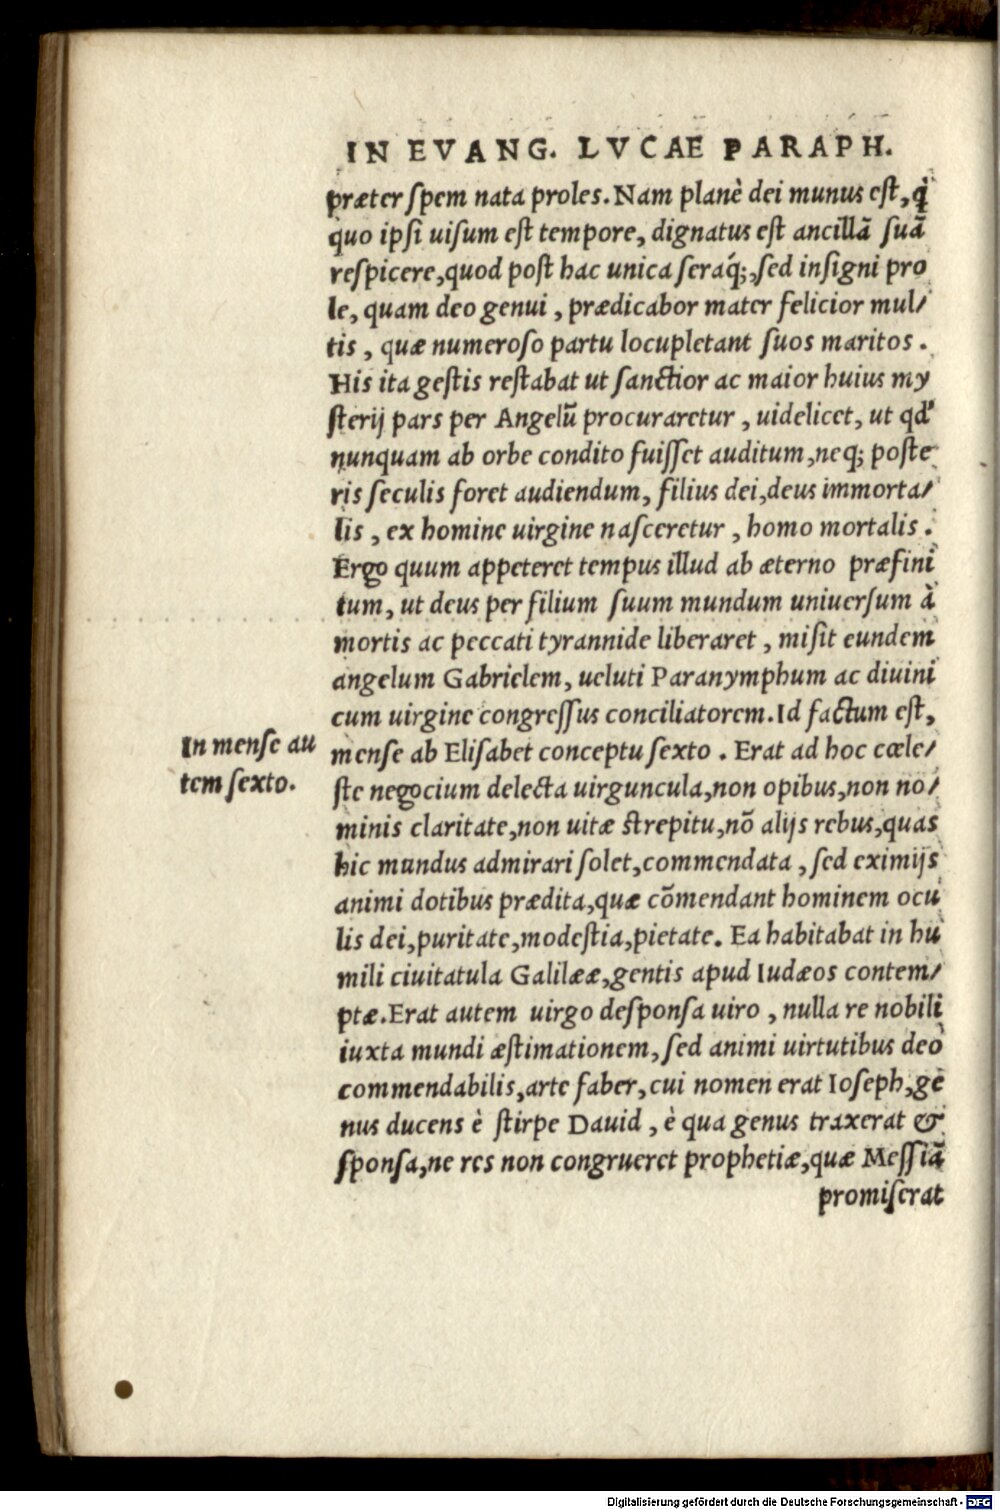 IN EVANG. LVCAE PARAPH.
præter ſpem nata proles. Nam planè dei munus eſt, q̃
quo ipſi uiſum eſt tempore, dignatus eſt ancillã ſuã
reſpicere, quod poſt hac unica ſeraq́;, ſed inſigni pro
le, quam deo genui, prædicabor mater felicior mul/
tis, quæ numeroſo partu locupletant ſuos maritos.
His ita geſtis reſtabat ut ſanctior ac maior huius my
ſterij pars per Angelũ procuraretur, uidelicet, ut qd'
nunquam ab orbe condito fuiſſet auditum, neq; poſte
ris ſeculis foret audiendum, filius dei, deus immorta/
lis, ex homine uirgine naſceretur, homo mortalis.
Ergo quum appeteret tempus illud ab æterno præfini
tum, ut deus per filium ſuum mundum uniuerſum à
mortis ac peccati tyrannide liberaret, miſit eundem
angelum Gabrielem, ueluti Paranymphum ac diuini
cum uirgine congreſſus conciliatorem. Id factum eſt,
In menſe au
tem ſexto.
menſe ab Eliſabet conceptu ſexto. Erat ad hoc cœle/
ſte negocium delecta uirguncula, non opibus, non no/
minis claritate, non uitæ ſtrepitu, nõ alijs rebus, quas
hic mundus admirari ſolet, commendata, ſed eximijs
animi dotibus prædita, quæ cõmendant hominem ocu
lis dei, puritate, modeſtia, pietate. Ea habitabat in hu
mili ciuitatula Galilææ, gentis apud Iudæos contem/
ptæ. Erat autem uirgo deſponſa uiro, nulla re nobili
iuxta mundi æſtimationem, ſed animi uirtutibus deo
commendabilis, arte faber, cui nomen erat Ioſeph, ge
nus ducens è ſtirpe Dauid, è qua genus traxerat &
ſponſa, ne res non congrueret prophetiæ, quæ Meſſiã
promiſerat
Digitalisierung gefördert durch die Deutsche Forschungsgemeinschaft - DFG